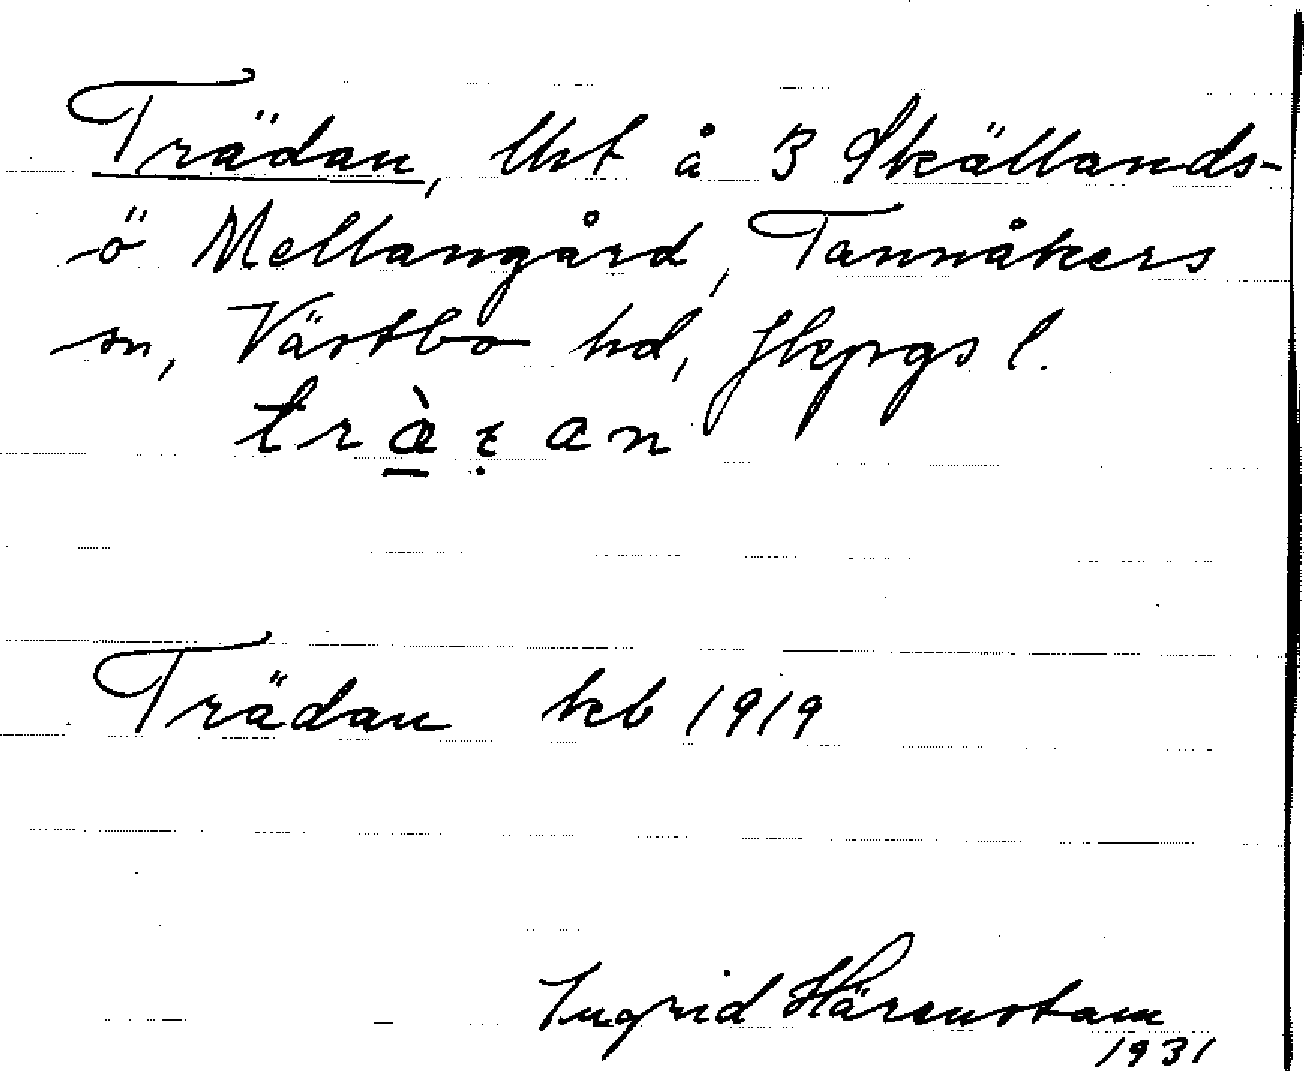 Trädan, lht å 3 Skällands-
ö Mellangård, Tannåkers
sn, Västbo hd, Jkpgs l.
Trädan keb 1919
Ingrid Härenstam
1931